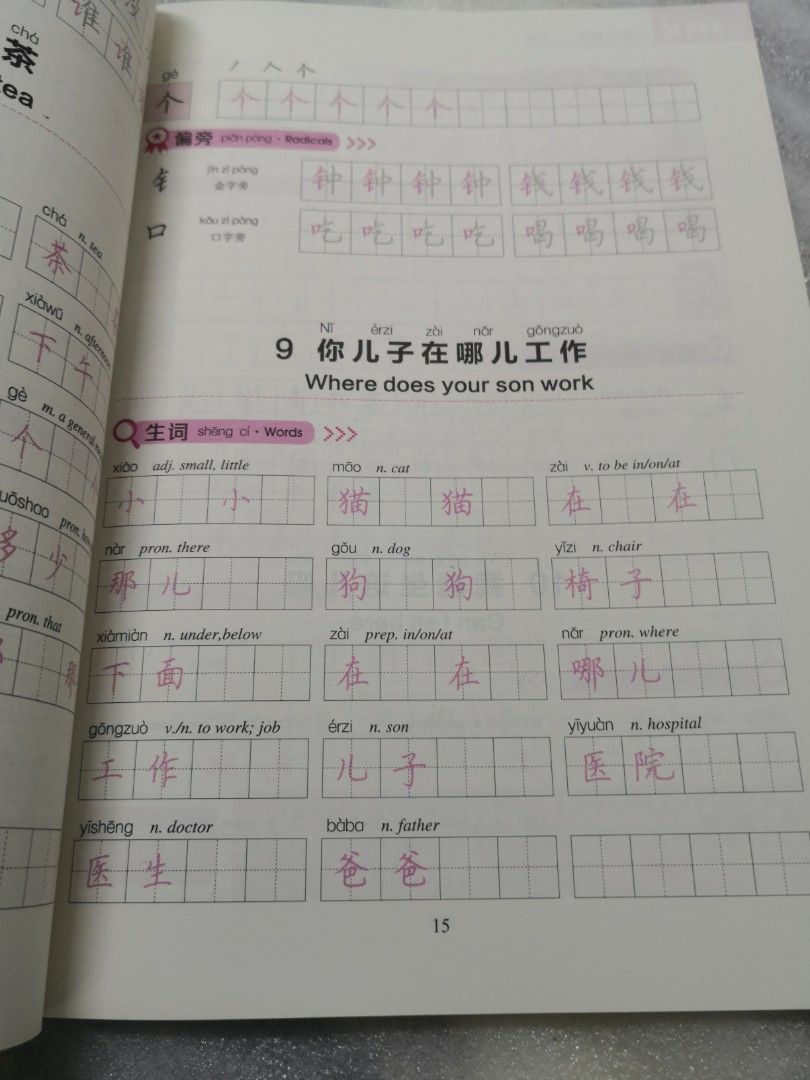 谁 谁
chá
茶
tea
chá n. tea
茶
xiàwǔ n. afternoon
下 午
gè m. a general
个
uōshao pron.
多 少
pron. that
那
gè 丿 人 个
个 个 个 个 个 个
偏旁 piān páng · Radicals >>>
钅 jīn zì páng 钟 钟 钟 钟 钱 钱 钱 钱
金字旁
口 kǒu zì páng 吃 吃 吃 吃 喝 喝 喝 喝
口字旁
Nǐ érzi zài nǎr gōngzuò
9 你儿子在哪儿工作
Where does your son work
生词 shēng cí · Words >>>
xiǎo adj. small, little māo n. cat zài v. to be in/on/at
小 小 猫 猫 在 在
nàr pron. there gǒu n. dog yǐzi n. chair
那 儿 狗 狗 椅 子
xiàmiàn n. under,below zài prep. in/on/at nǎr pron. where
下 面 在 在 哪 儿
gōngzuò v./n. to work; job érzi n. son yīyuàn n. hospital
工 作 儿 子 医 院
yīshēng n. doctor bàba n. father
医 生 爸 爸
15